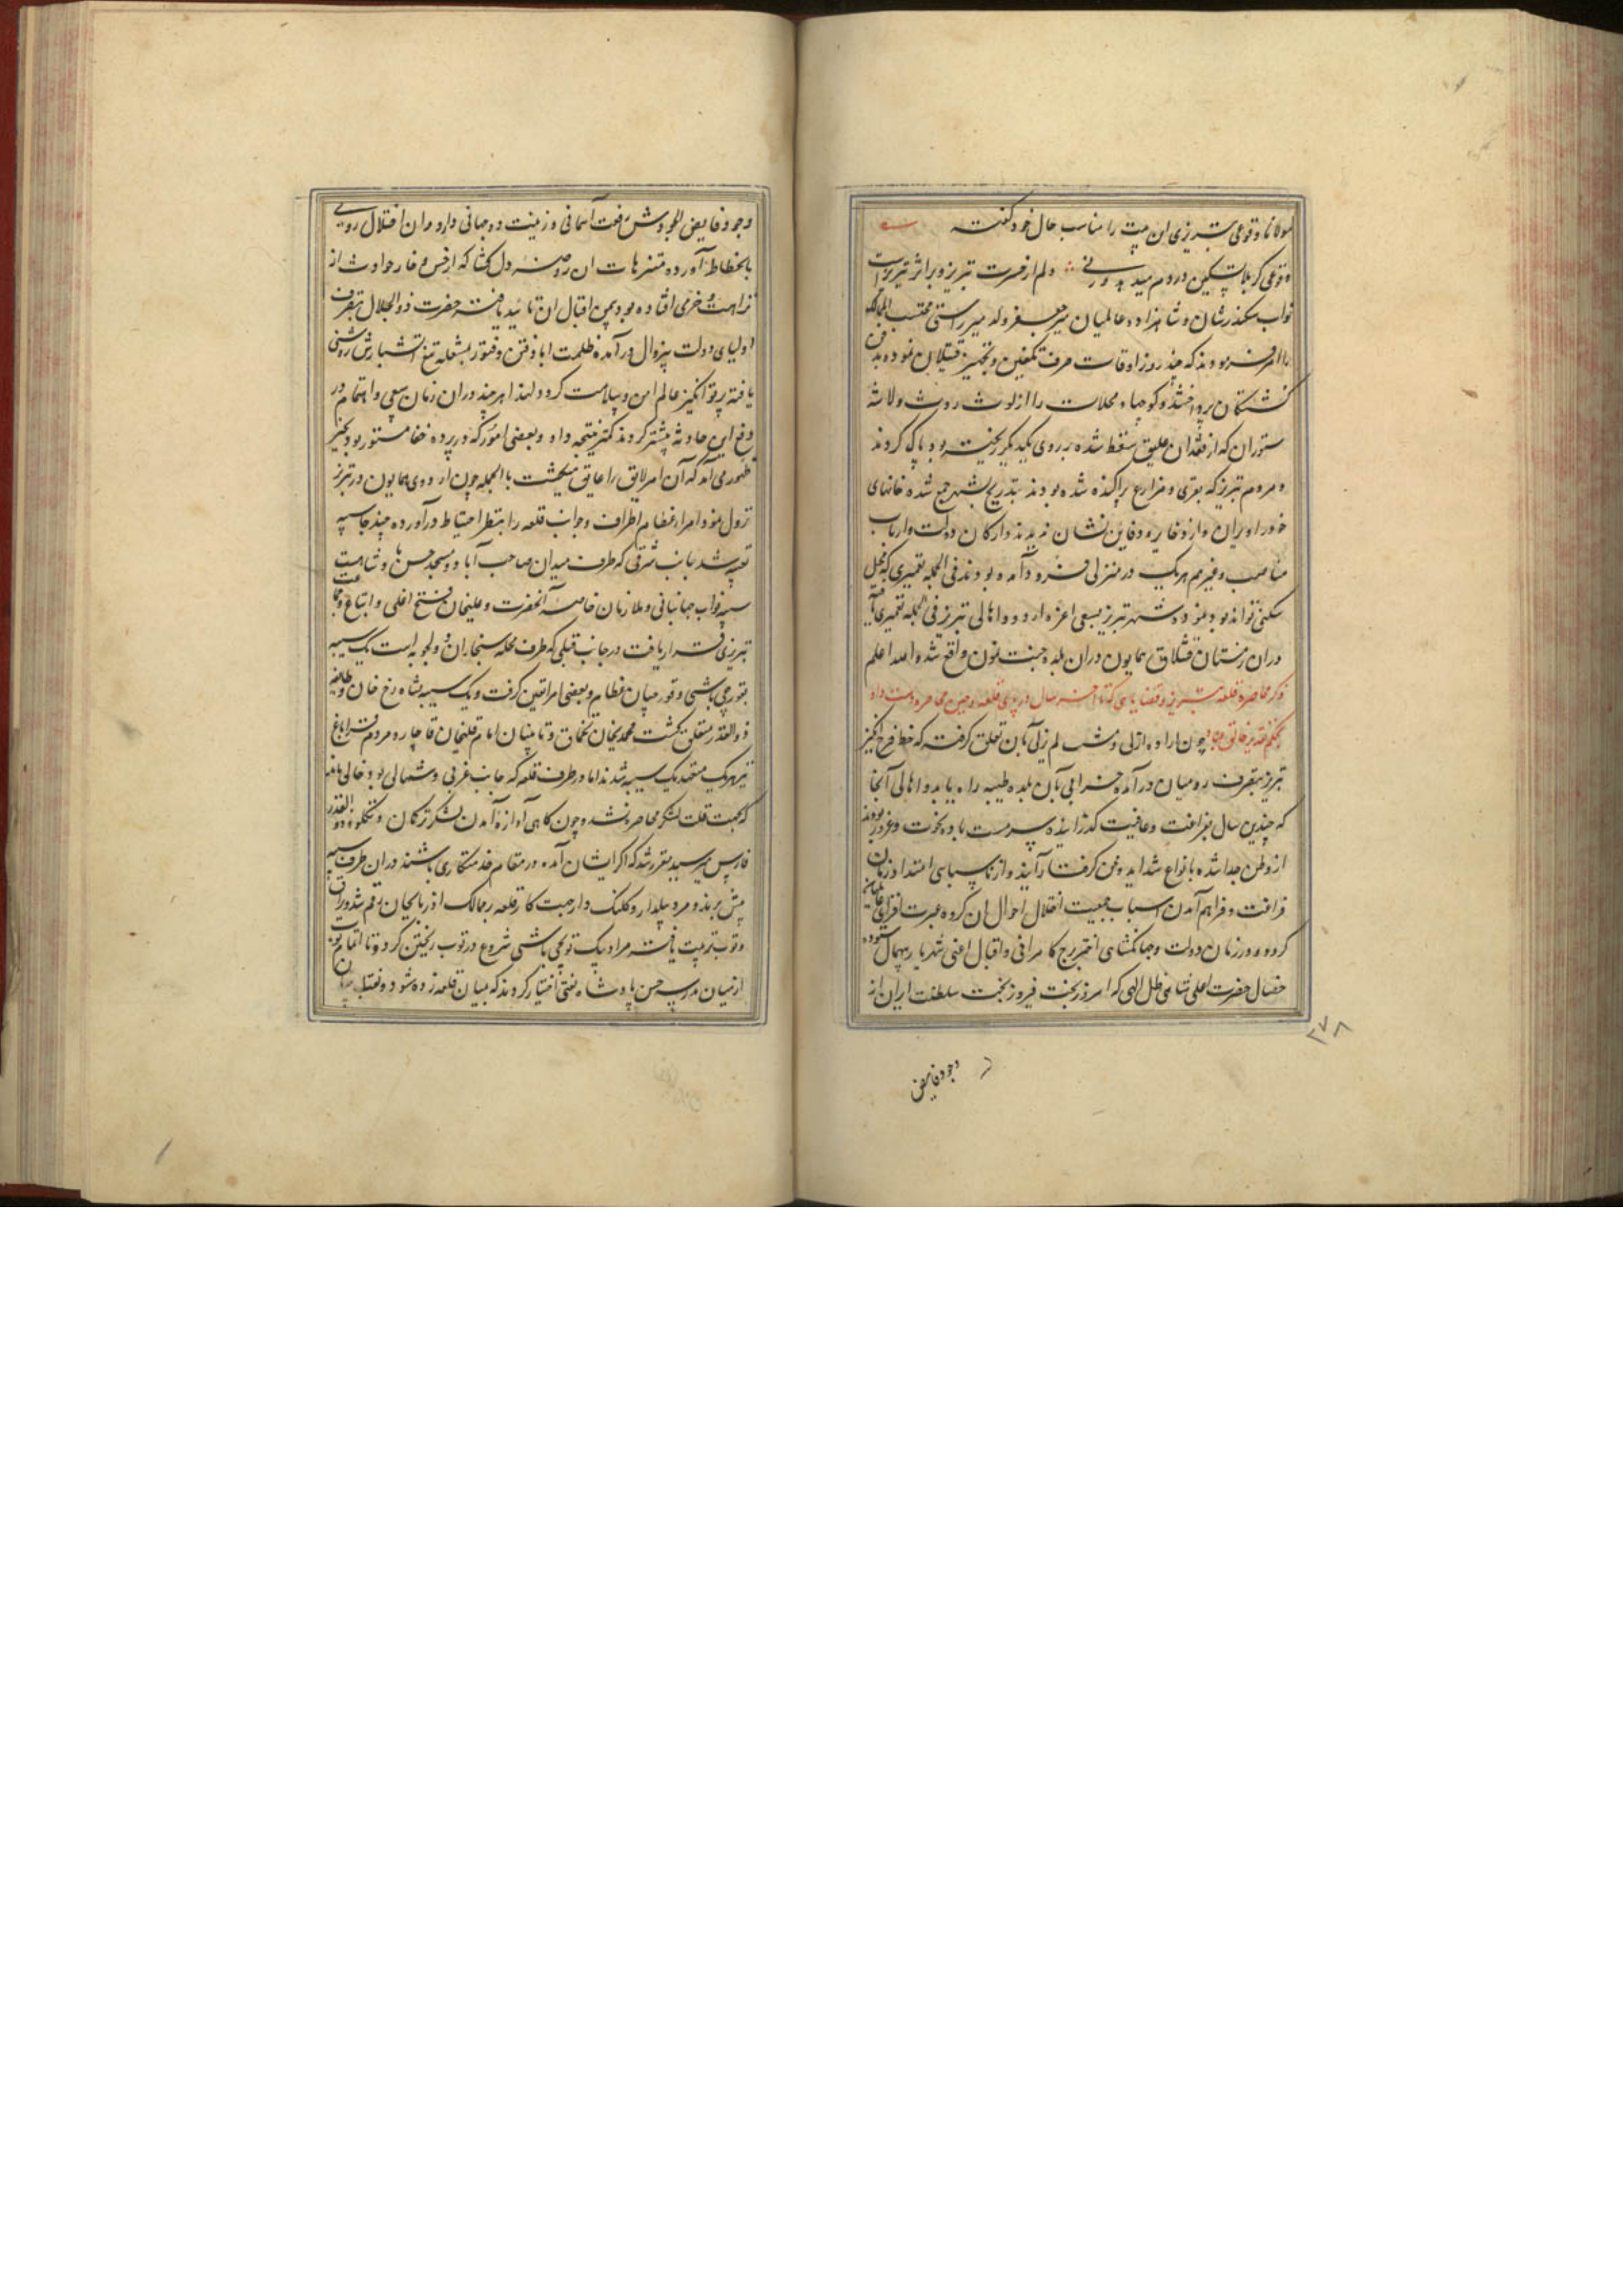 مولانا وقوعی تبریزی این بیت را مناسب حال خود گفته
وقوعی کربلا تسکین دردم میدهد ورنی دلم از حسرت تبریز و براثر تبریزست
نواب سکندرشان و شاهزاده عالمیان میر جعفر ولد میر راستی محتسب الممالک
را امر فرمودند که چند روز اوقات صرف تکفین و تجهیز قتیلان نموده بدفن
کشتگان پرداختند و کوچها و محلات را از لوث روث و لاشه
ستوران که از فقدان علیق سقط شده بر روی یکدیگر ریخته بود پاک کردند
و مردم تبریز که بقری و مزارع پراکنده شده بودند بتدریج بشهر جمع شده خانهای
خود را ویران و از ذخایر و دفاین نشان ندیدند و ارکان دولت و ارباب
مناصب و غیرهم هر یک در منزلی فرود آمده بودند فی الجمله تعمیری که محل
سکنی تواند بود نموده شهر تبریز بسعی اعزه اردو و اهالی تبریز فی الجمله تعمیری یافته
در آن زمستان قشلاق همایون در آن بلده جنت نمون واقع شد والله اعلم
ذکر محاصره قلعه تبریز و قضایای که تا آخر سال در پای قلعه و حین محاصره دست داد
بحکم تقدیر خالق عباد چون اراده ازلی و مشیت لم یزلی بآن تعلق گرفت که خطه فرح انگیز
تبریز بتصرف رومیان درآمده خرابی بآن بلده طیبه راه یابد و اهالی آنجا
که چندین سال بفراغت و عافیت گذرانیده سرمست باده نخوت و غرور بودند
از وطن جدا شده بانواع شداید و محن گرفتار آیند و از ناسپاسی امتداد زمان
فراغت و فراهم آمدن اسباب جمعیت اختلال احوال آن گروه عبرت افزای
کردد و در زمان دولت و جهانگشایی اختر برج کامرانی و اقبال اعنی شهریار
خصال حضرت اعلی شاهی ظل الهی که امروز بخت فیروز بخت سلطنت ایران از
۲۷۸
وجود فایض
وجود فایض الجودش رفعت آسمانی و زینت دو جهانی دارد و آن اختلال روی
بانحطاط آورده متنزهات آن روضه دلگشا که از خس و خار حوادث از
نزاهت و خرمی افتاده بود بیمن اقبال آن تایید یافته حضرت ذوالجلال بتصرف
اولیای دولت بیزوال درآمده ظلمت آباد فتن و فتور بشعله تیغ آتشبارش روشنی
یافته پرتو انگیز عالم امن و سلامت کردد لهذا هر چند در آن زمان سعی و اهتمام در
دفع این حادثه بیشتر کردند کمتر نتیجه داد و بعضی امور که در پرده خفا مستور بود بحیز
ظهور می آمد که آن امر لایق را عایق میگشت بالجمله چون اردوی همایون در تبریز
نزول نمود امراء عظام اطراف و جوانب قلعه را بنظر احتیاط درآورده چند جا سیبه
تعبیه شد جانب شرقی که طرف میدان صاحب آباد و مسجد حسن پادشاهست
سیبه نواب جهانبانی و ملازمان خاصه آنحضرت و علیخان فتح اغلی و اتباع
تبریزی قرار یافت در جانب قبلی که طرف محله سنجاران و ولجویه است یک سیبه
بقورچی باشی و قورچیان عظام و بعضی امرا تعین گرفت و یک سیبه بشاهرخ خان و طایفه
ذوالقدر متعلق گشت محمدیخان تخماق و تابینان امام قلیخان قاجار و مردم قراباغ
نیز هر یک متعهد یک سیبه شدند اما در طرف قلعه که جانب غربی و شمالی بود خالی ماند
که بجهت قلت لشکر محاصره نشد و چون گاهی آوازه آمدن لشکر ترکمان و تکلو و ذوالقدر
فارس میرسید مقرر شد که اگر ایشان آمده در مقام خدمتکاری باشند در آن طرف سیبه
پیش برند و مرد بیلدار و کلنک دار جهت کار قلعه بر ممالک آذربایجان رقم شد و یراق
و توب تربیت یافته مراد بیک توپچی باشی شروع در توب ریختن کرد و تا اتمام توب
از میان مدرسه حسن پادشاه نقبی اختیار کردند که بمیان قلعه زده شود و نقابان